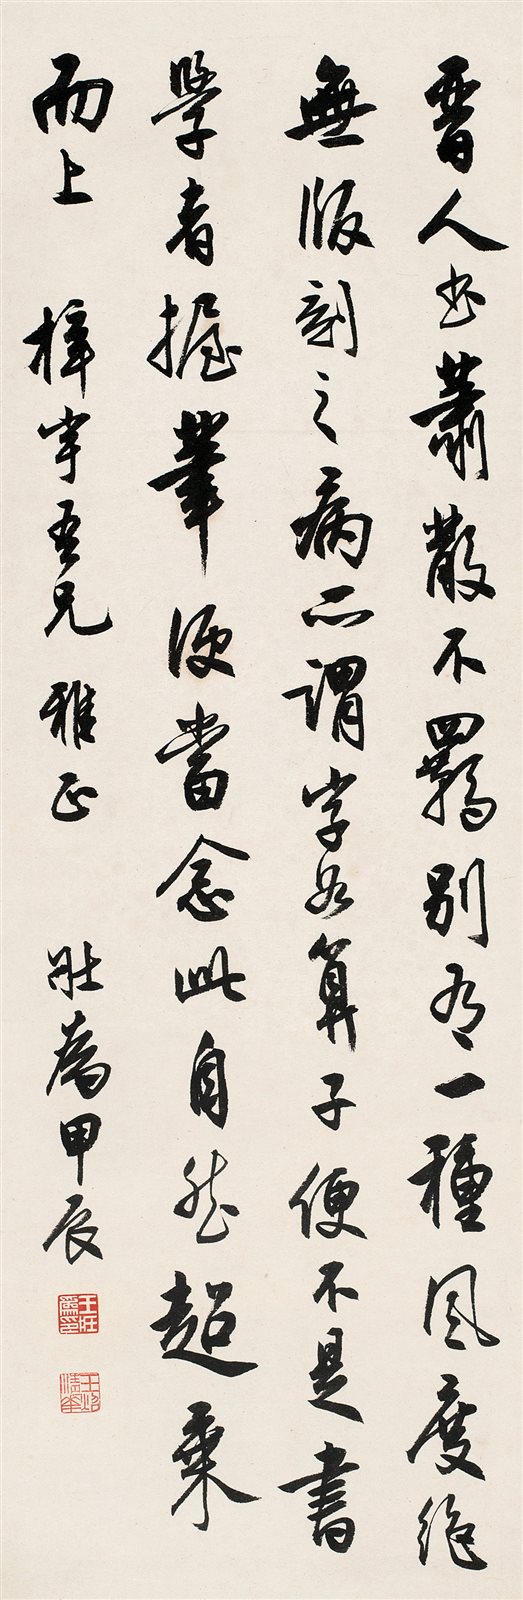 晉人書蕭散不羈別有一種風度絕
無版刻之病所謂字如算子便不是書
學者握筆便當念此自然超乘
而上 梓宇吾兄 雅正 壯為甲辰
王壯為印